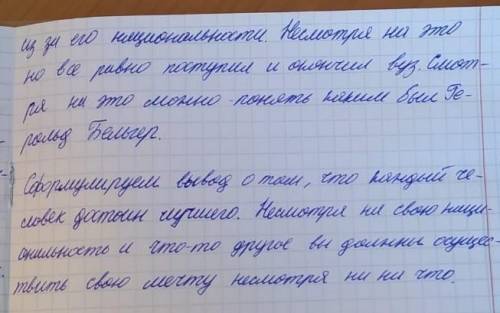 из за его национальности. Несмотря на это
но все равно поступил и окончил вуз. Смот-
ря на это можно понять каким был Ге-
рольд Бельгер.
Сформулируем вывод о том, что каждый че-
ловек достоин лучшего. Несмотря на свою наци-
ональность и что-то другое вы должны осущес-
твить свою мечту несмотря ни на что.